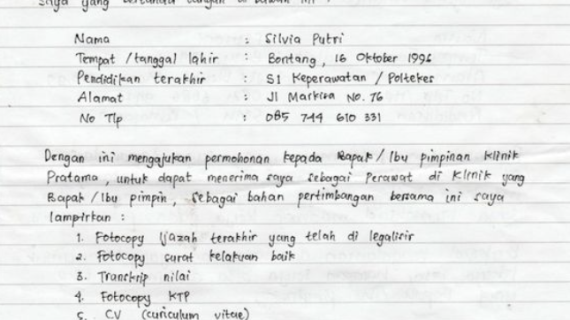 saya yang bertanda tangan di bawah ini :
Nama : Silvia Putri
Tempat / tanggal lahir : Bontang, 16 Oktober 1996
Pendidikan terakhir : S1 Keperawatan / Poltekes
Alamat : Jl Markisa No. 76
No Tlp : 085 744 610 331
Dengan ini mengajukan permohonan kepada Bapak / Ibu pimpinan Klinik
Pratama, untuk dapat menerima saya sebagai Perawat di Klinik yang
Bapak / Ibu pimpin, sebagai bahan pertimbangan bersama ini saya
lampirkan :
1. Fotocopy Ijazah terakhir yang telah di legalisir
2. Fotocopy surat kelakuan baik
3. Transkrip nilai
4. Fotocopy KTP
5. CV (curiculum vitae)